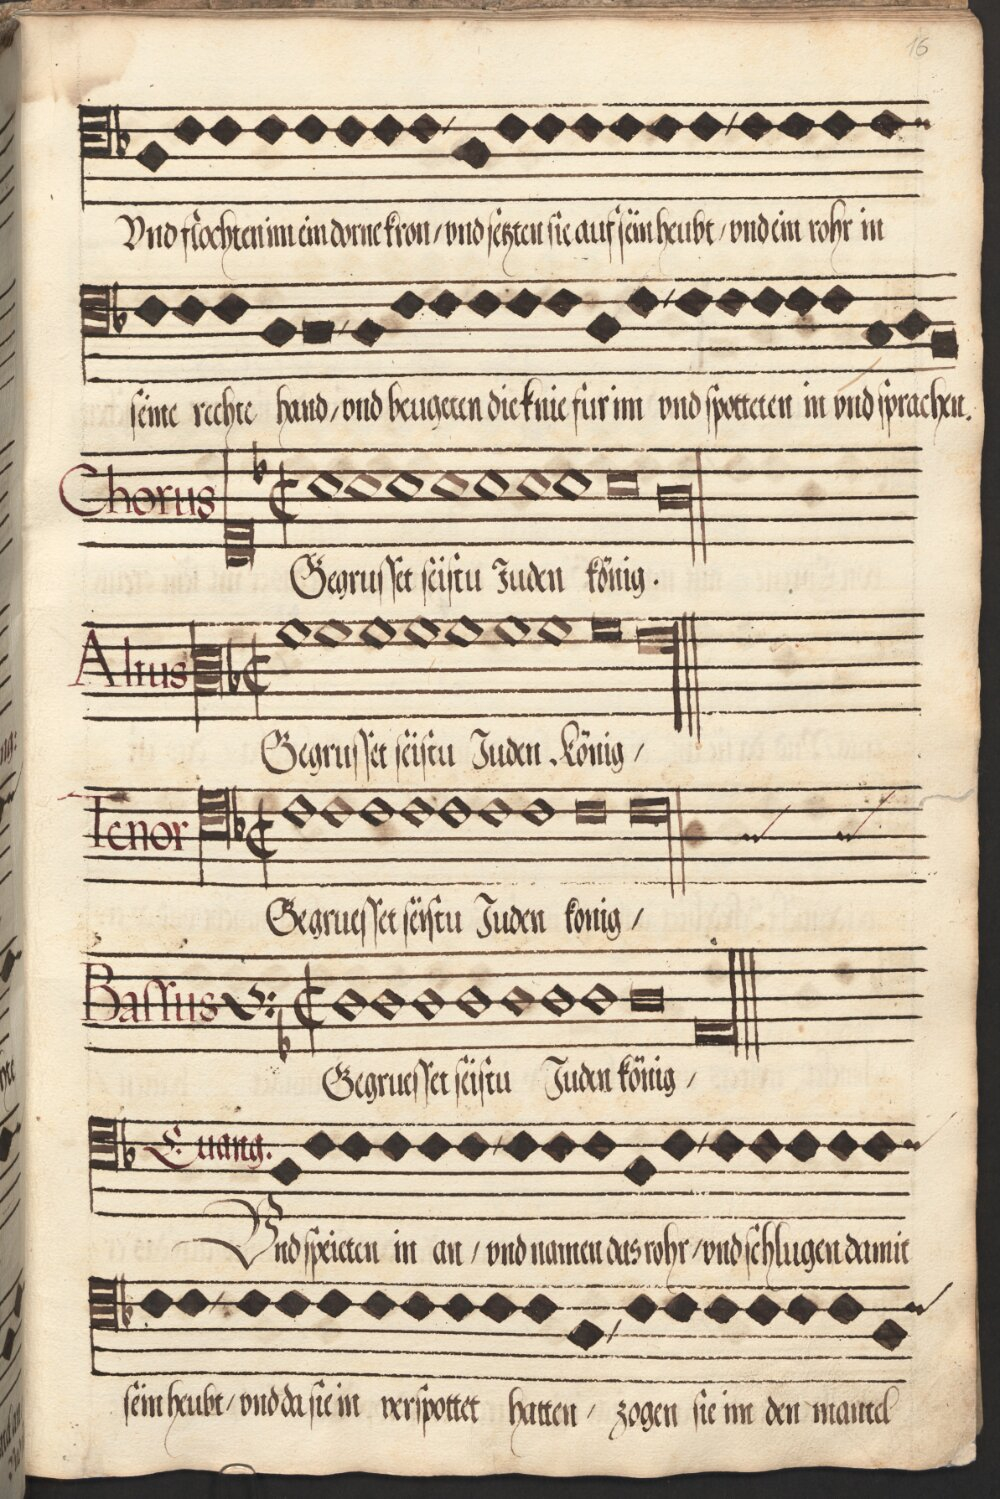 16
Vnd flochten im ein dorne kron / vnd setzten sie auf sein heubt / vnd ein rohr in
seine rechte hand / vnd beugeten die knie fur im vnd spotteten in vnd sprachen.
Chorus
Gegrusset seistu Juden könig.
Altus
Gegrusset seistu Juden König /
Tenor
Gegruesset seistu Juden konig /
Bassus
Gegruesset seistu Juden könig /
Euang.
Vnd speieten in an / vnd namen das rohr / vnd schlugen damit
sein heubt / vnd da sie in verspottet hatten / zogen sie im den mantel